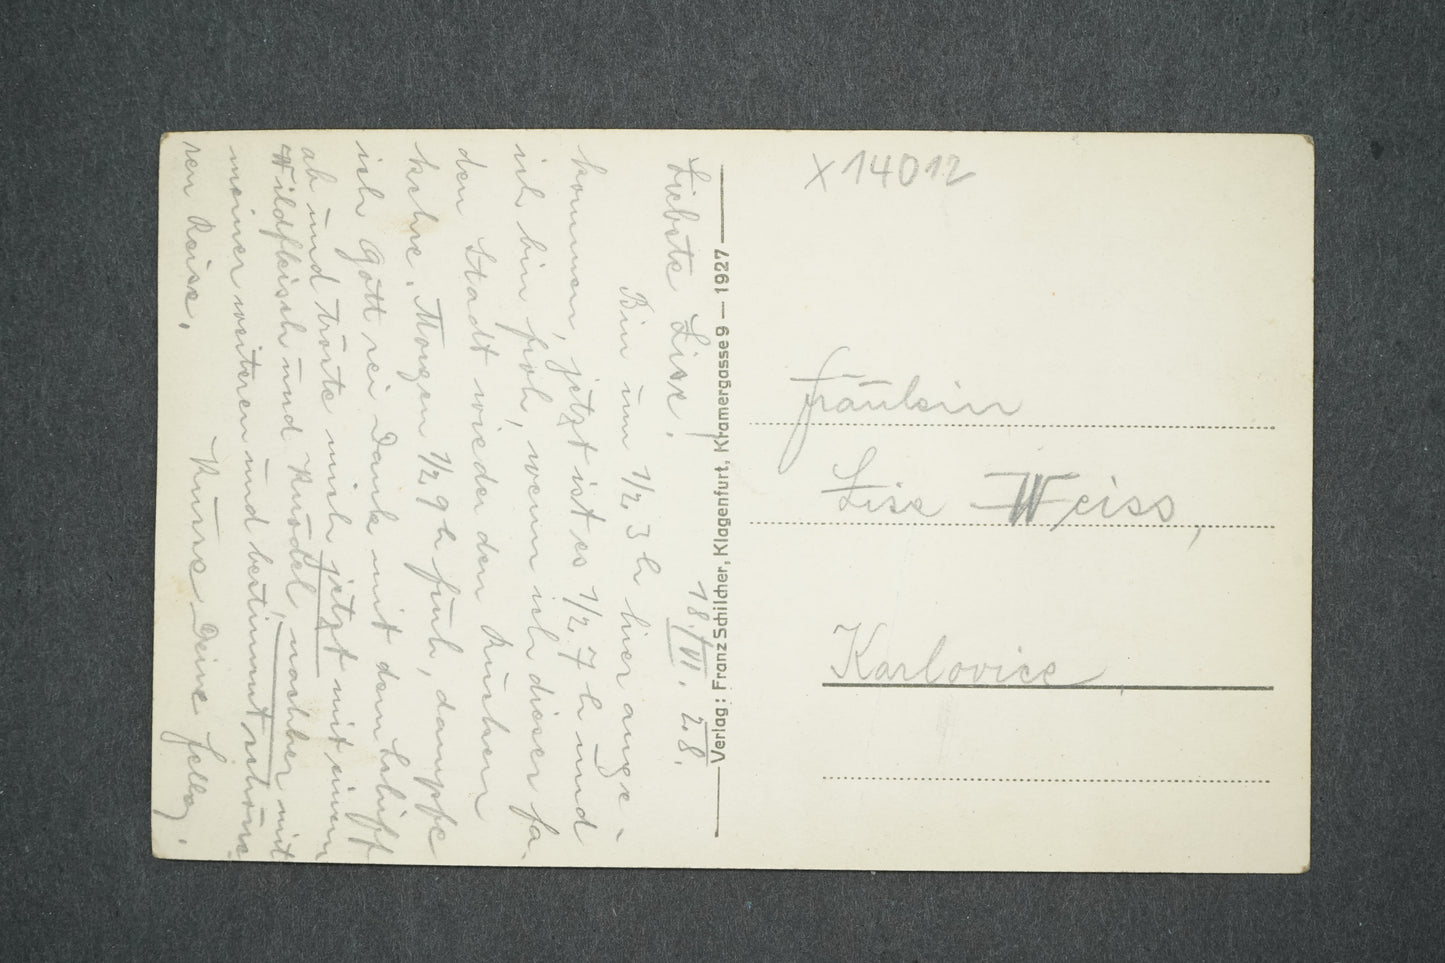 18./VI. 28.
Liebste Lise!
Bin um 1/2 3 h hier ange-
kommen, jetzt ist es 1/2 7 h und
ich bin froh, wenn ich dieser fa-
den Stadt wieder den Rücken
kehre. Morgen 1/2 9 h früh, dampfe
ich Gott sei Dank mit dem Schiff
ab und tröste mich jetzt mit einem
Wildfleisch und Knödel, nachher mit
meiner weiteren und bestimmt schöne-
ren Reise.
Küsse Deine Felly.
Verlag: Franz Schilcher, Klagenfurt, Kramergasse 9 — 1927
X 14012
Fräulein
Lise Weiss,
Karlovice